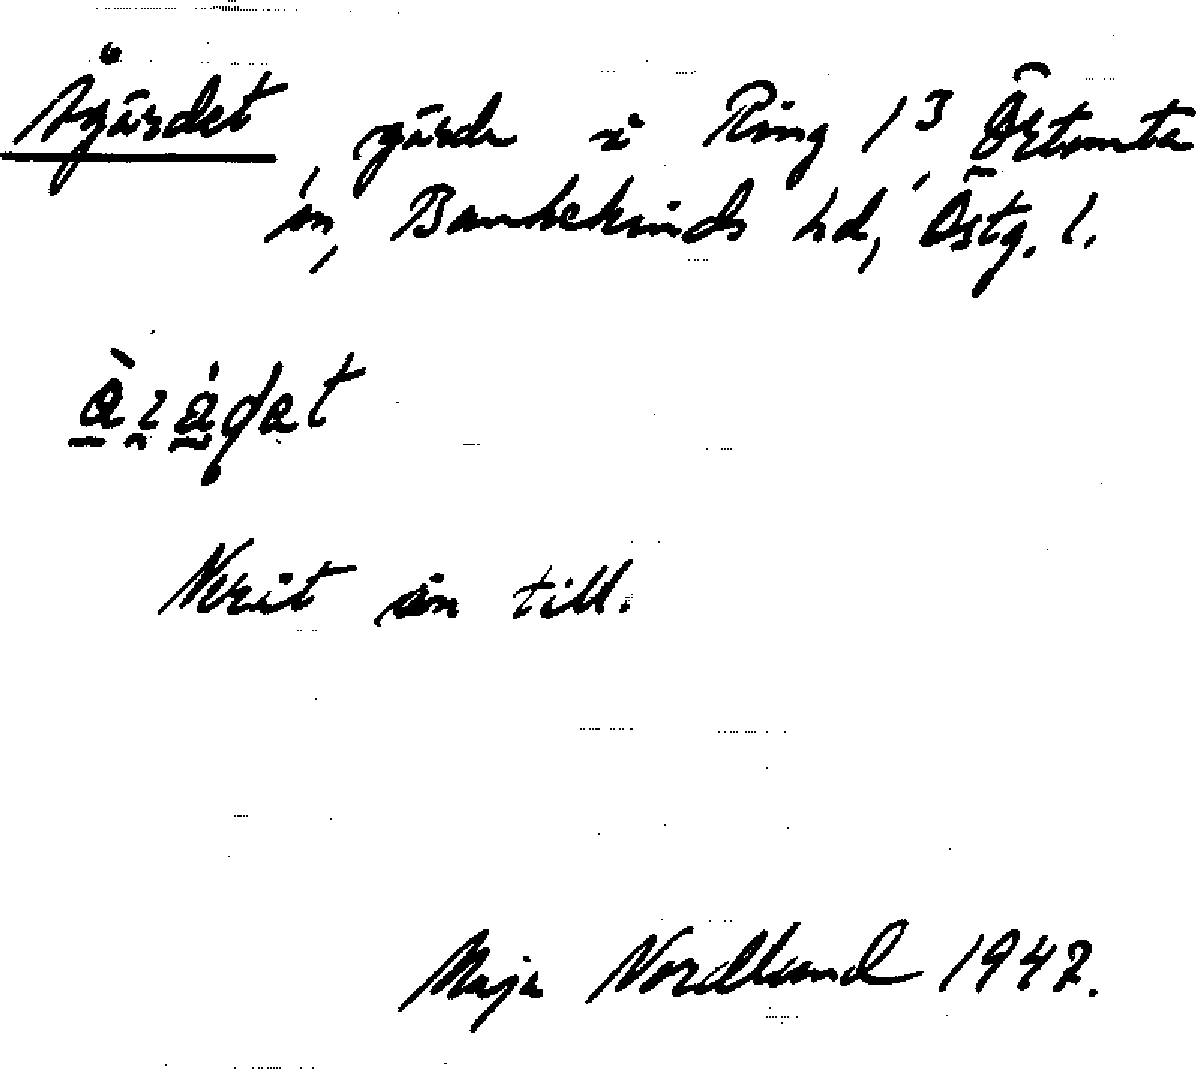 Ågärdet, gärde i Ring 1³ Örtomta
sn, Bankekinds hd, Östg. l.
Varit än till.
Maja Nordlund 1942.